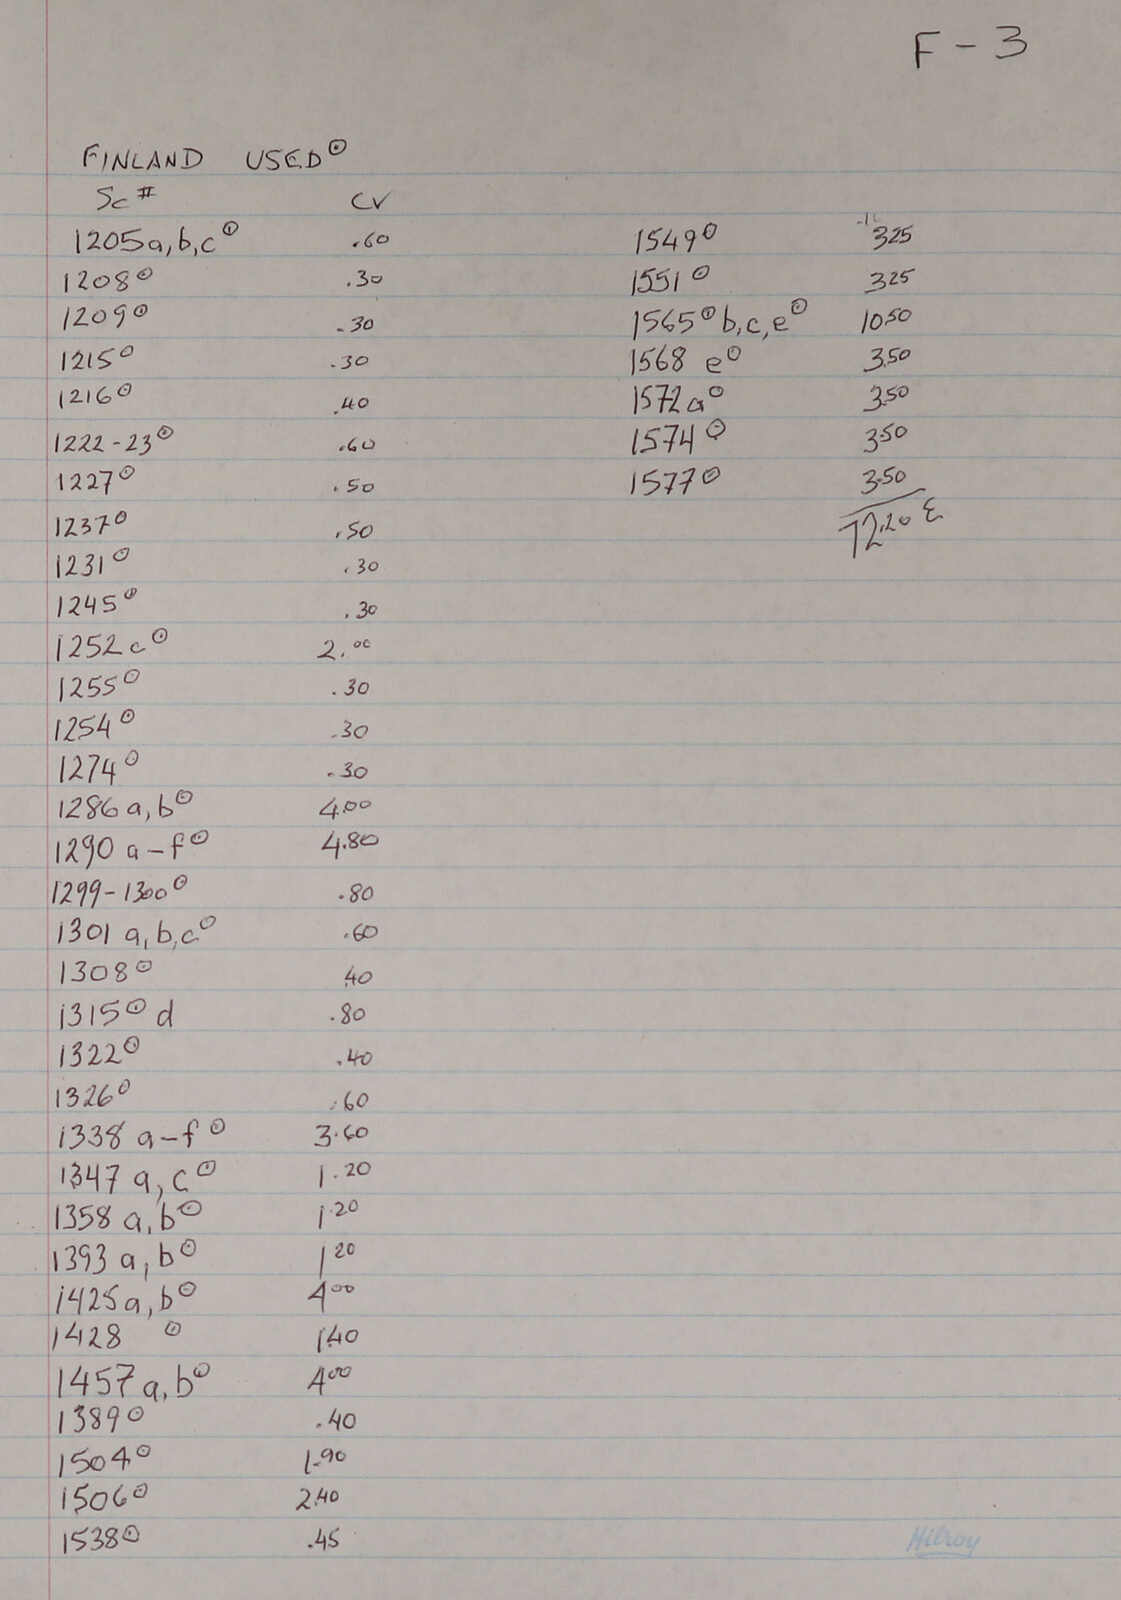 F - 3
FINLAND USED⊙
Sc # CV
1205a,b,c⊙ .60
1208⊙ .30
1209⊙ .30
1215⊙ .30
1216⊙ .40
1222-23⊙ .60
1227⊙ .50
1237⊙ .50
1231⊙ .30
1245⊙ .30
1252c⊙ 2.00
1255⊙ .30
1254⊙ .30
1274⊙ .30
1286a,b⊙ 4.00
1290 a-f⊙ 4.80
1299-1300⊙ .80
1301 a,b,c⊙ .60
1308⊙ .40
1315⊙ d .80
1322⊙ .40
1326⊙ .60
1338 a-f⊙ 3.60
1347 a,c⊙ 1.20
1358 a,b⊙ 1.20
1393 a,b⊙ 1 20
1425a,b⊙ 4 00
1428 ⊙ 1.40
1457a,b⊙ 4 00
1389⊙ .40
1504⊙ 1.90
1506⊙ 2.40
1538⊙ .45
1549⊙ 3 25
1551⊙ 3 25
1565⊙ b,c,e⊙ 10 50
1568 e⊙ 3.50
1572a⊙ 3 50
1574⊙ 3 50
1577⊙ 3.50
72.20 €
Hilroy